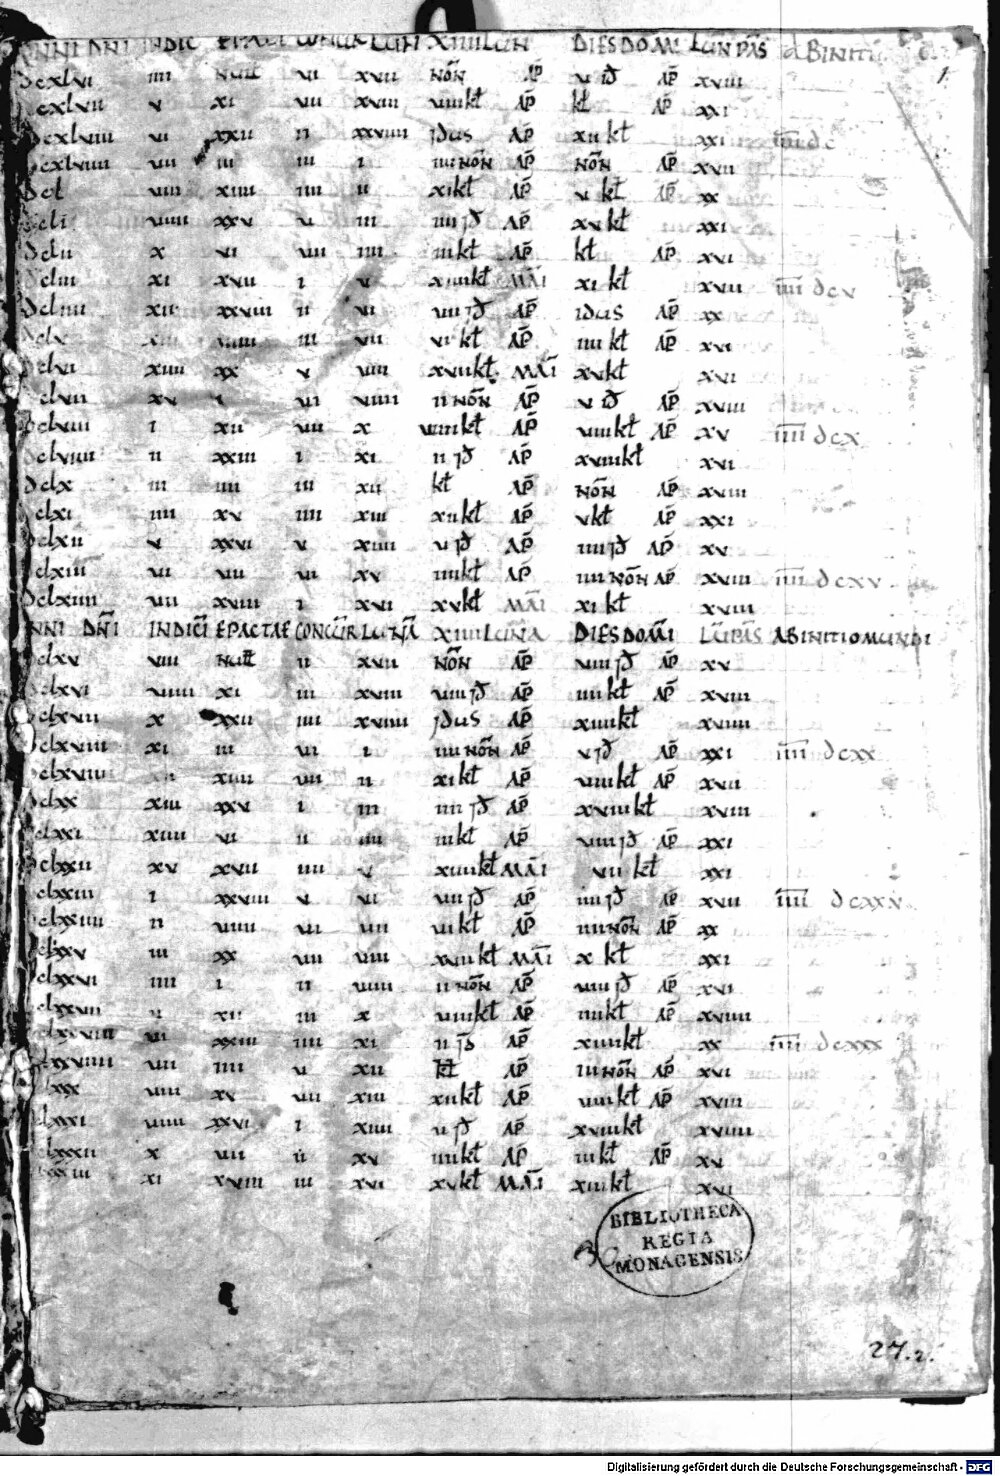 ANNI DNI INDIC EPACT CONCUR LUN XIIII LUN DIES DOM LUN PAS ABINITI
dcxlvi iiii null vi xvii nōn ap v id ap xviii
dcxlvii v xi vii xviii viii kl ap kl ap xxi
dcxlviii vi xxii ii xviiii idus ap xii kl xxi iiii dc
dcxlviiii vii iii iii i iiii nōn ap nōn ap xvii
dcl viii xiiii iiii ii xi kl ap v kl ap xx
dcli viiii xxv v iii iiii id ap xv kl xxi
dclii x vi vii iiii iii kl ap kl ap xvi
dcliii xi xvii i v xiiii kl mai xi kl xvii iiii dcv
dcliiii xii xxviii ii vi vii id ap idus ap xx
dclv xiii viiii iii vii vi kl ap iiii kl ap xvi
dclvi xiiii xx v viii xvii kl mai xv kl xvi
dclvii xv i vi viiii ii nōn ap v id ap xviii
dclviii i xii vii x viiii kl ap viii kl ap xv iiii dcx
dclviiii ii xxiii i xi ii id ap xviii kl xvi
dclx iii iiii iii xii kl ap nōn ap xviii
dclxi iiii xv iiii xiii xii kl ap v kl ap xxi
dclxii v xxvi v xiiii v id ap iiii id ap xv
dclxiii vi vii vi xv iiii kl ap iiii nōn ap xviii iiii dcxv
dclxiiii vii xviii i xvi xv kl mai xi kl xviiii
ANNI DNI INDICI EPACTAE CONCUR LUNA XIIII LUNA DIES DOMI LU PAS ABINITIOMUNDI
dclxv viii null ii xvii nōn ap viii id ap xv
dclxvi viiii xi iii xviii viii id ap iiii kl ap xviii
dclxvii x xxii iiii xviiii idus ap xiiii kl xviiii
dclxviii xi iii vi i iiii nōn ap v id ap xxi iiii dcxx
dclxviiii xii xiiii vii ii xi kl ap viii kl ap xvii
dclxx xiii xxv i iii iiii id ap xviii kl xviii
dclxxi xiiii vi ii iiii iii kl ap viii id ap xxi
dclxxii xv xvii iiii v xiiii kl mai vii kl xxi
dclxxiii i xxviii v vi vii id ap iiii id ap xvii iiii dcxxv
dclxxiiii ii viiii vi vii vi kl ap iiii nōn ap xx
dclxxv iii xx vii viii xvii kl mai x kl xxi
dclxxvi iiii i ii viiii ii nōn ap viii id ap xvi
dclxxvii v xii iii x viiii kl ap iiii kl ap xviiii
dclxxviii vi xxiii iiii xi ii id ap xiiii kl xx iiii dcxxx
dclxxviiii vii iiii v xii kl ap iii nōn ap xvi
dclxxx viii xv vii xiii xii kl ap viii kl ap xviii
dclxxxi viiii xxvi i xiiii v id ap xviii kl xviiii
dclxxxii x vii ii xv iiii kl ap iii kl ap xv
xi xviii iii xvi xv kl mai xiii kl xvi
BIBLIOTHECA
REGIA
MONACENSIS
27.2.
Digitalisierung gefördert durch die Deutsche Forschungsgemeinschaft - DFG